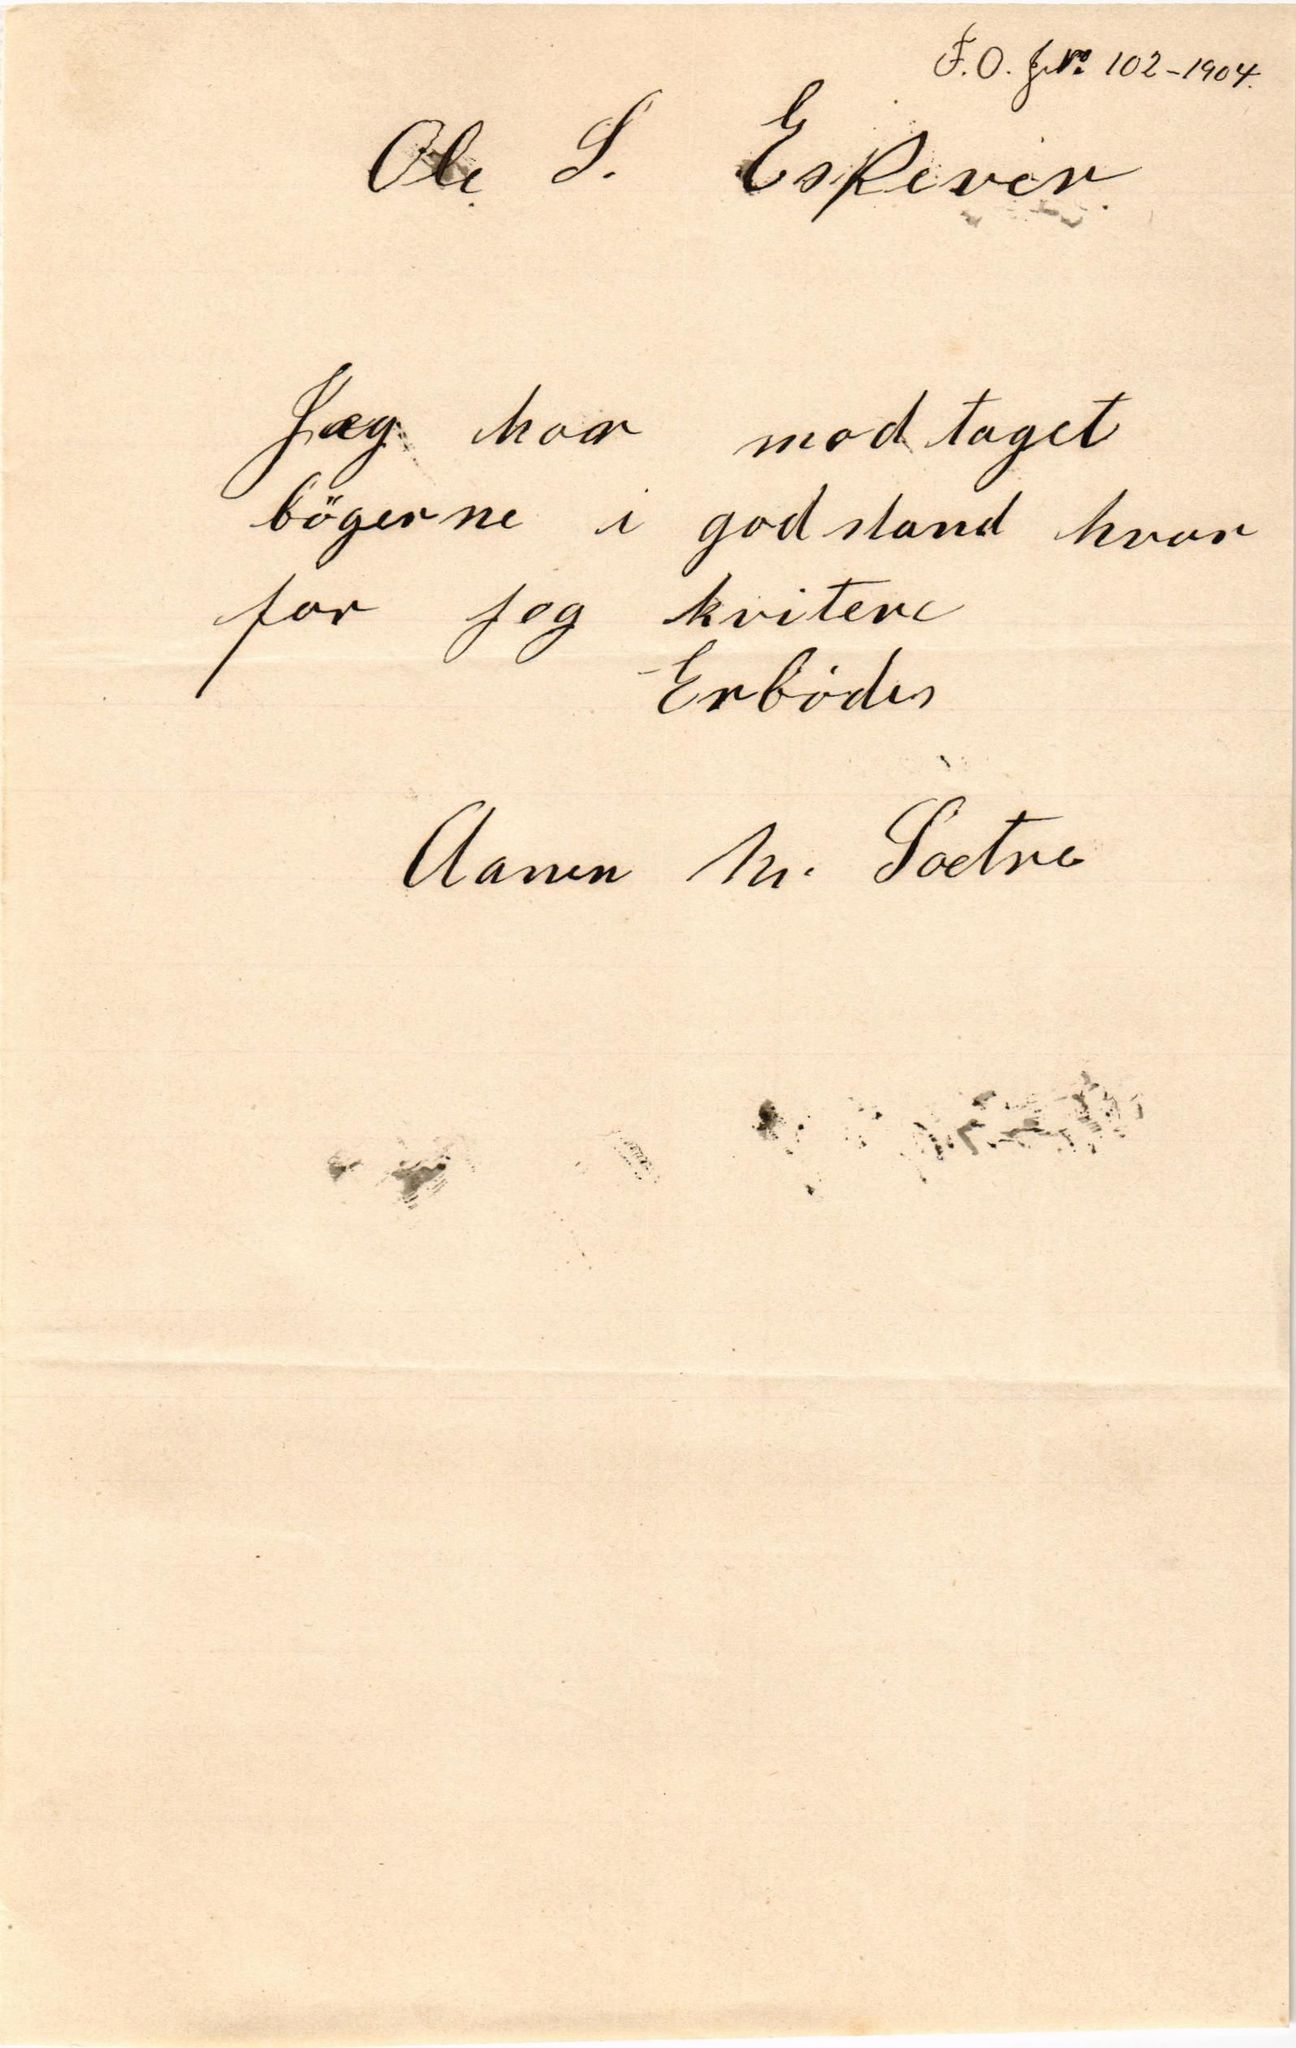 F.O. JNo. 102-1904.
Ole S. Eskever
Jæg haar mod taget
bögerne i god stand hvor
for jeg kvitere
Erbödes
Aanen M. Soetre